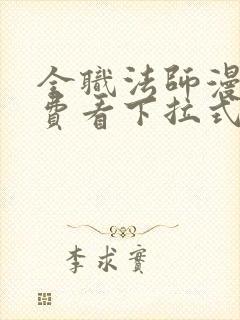 全職法師漫
費看下拉式
李求實